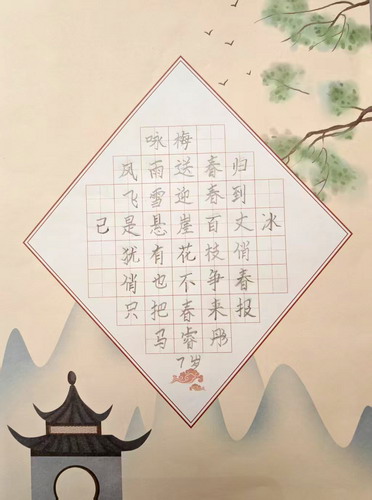 咏梅
风雨送春归
飞雪迎春到
已是悬崖百丈冰
犹有花枝俏
俏也不争春
只把春来报
马睿彤
7岁